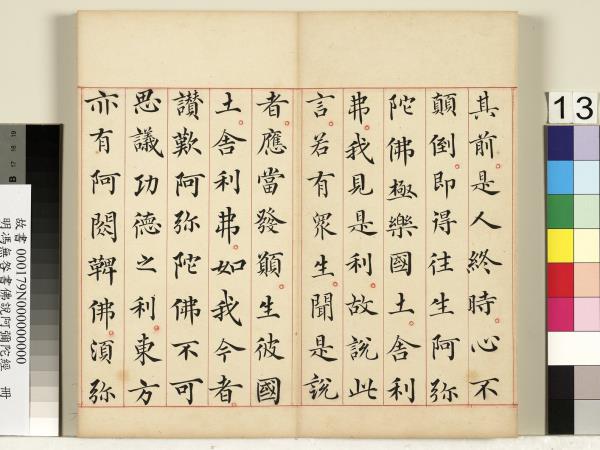 其前。是人終時。心不
顛倒。即得往生阿弥
陀佛極樂國土。舍利
弗。我見是利。故說此
言。若有眾生。聞是說
者。應當發願。生彼國
土。舍利弗。如我今者。
讚歎阿弥陀佛不可
思議功德之利。東方
亦有阿閦鞞佛。須弥
13
故書 000179N000000000
明馮無咎書佛說阿彌陀經 冊